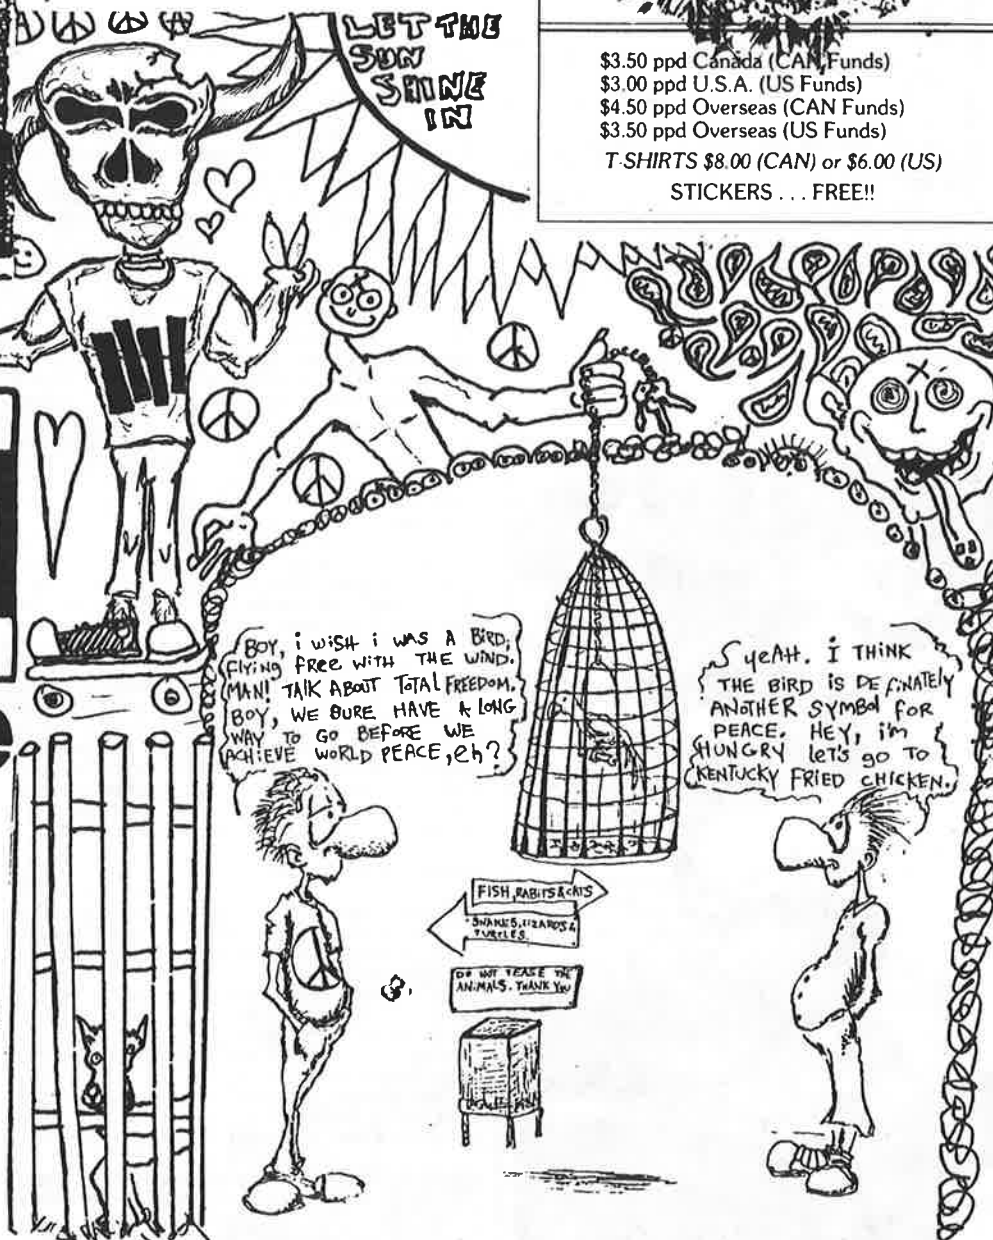 LET THE
SUN
SHINE
IN
$3.50 ppd Canada (CAN Funds)
$3.00 ppd U.S.A. (US Funds)
$4.50 ppd Overseas (CAN Funds)
$3.50 ppd Overseas (US Funds)
T-SHIRTS $8.00 (CAN) or $6.00 (US)
STICKERS . . . FREE!!
BOY, i wiSH i WAS A BiRD;
FlYiNG free WiTH THE WIND.
MAN! TALK ABOUT TOTAL FREEDOM.
BOY, WE SURE HAVE A LONG
WAY TO GO BEFORE WE
ACHiEVE WORLD PEACE, eh?
yeAH. I THiNK
THE BiRD iS DEFiNATELY
ANOTHER SYMBOl FOR
PEACE. HEY, i'm
HUNGRY let's go TO
KENTUCKY FRiED CHiCKEN.
FISH, RABiTS & CATS
SNAKES, LiZARDS &
TURTLES.
DO NOT TEASE THE
ANiMALS. THANK YOU